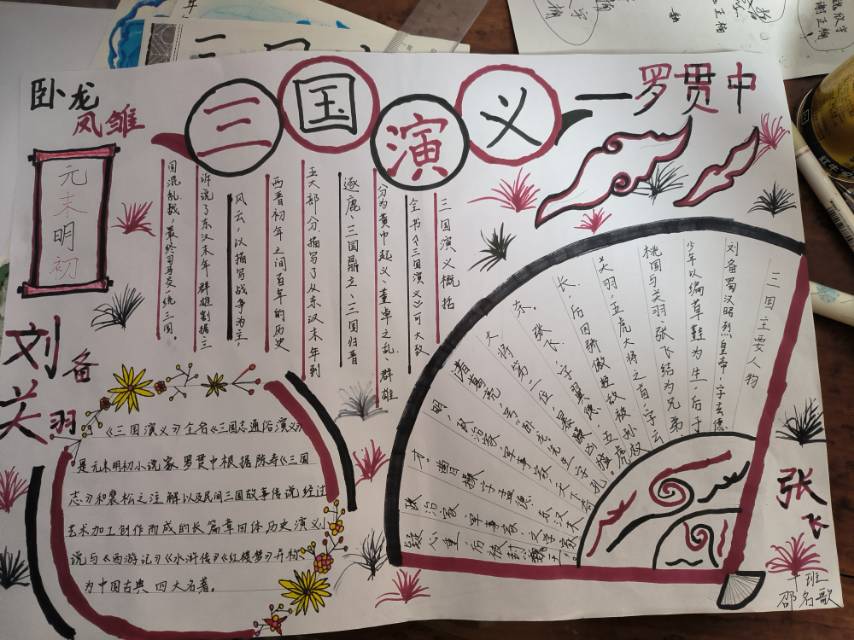 三国演义—罗贯中
卧龙
凤雏
元末明初
刘备
关羽
张飞
三国演义概括
全书《三国演义》可大致
分为黄巾起义、董卓之乱、群雄
逐鹿、三国鼎立、三国归晋
五大部分,描写了从东汉末年到
西晋初年之间百年的历史
风云,以描写战争为主,
诉说了东汉末年群雄割据三
国混乱战,最终司马炎一统三国。
三国主要人物
刘备蜀汉昭烈皇帝,字玄德
少年以编草鞋为生,后于
桃园与关羽、张飞结为兄弟,
关羽,五虎大将之首,字云
长,后因骄傲被敌被孙权
东。张飞,字翼德,五虎
大将第二位,暴躁凶猛
诸葛亮,号卧龙先生,字孔
明,政治家、军事家、天下奇
才。曹操字孟德,东汉末
政治家、军事家、文学家
疑心重,后被封魏王
《三国演义》全名《三国志通俗演义》
是元末明初小说家罗贯中根据陈寿《三国
志》和裴松之注解以及民间三国故事传说经过
艺术加工创作而成的长篇章回体历史演义小
说与《西游记》《水浒传》《红楼梦》并构
为中国古典四大名著。
班
邵名歌